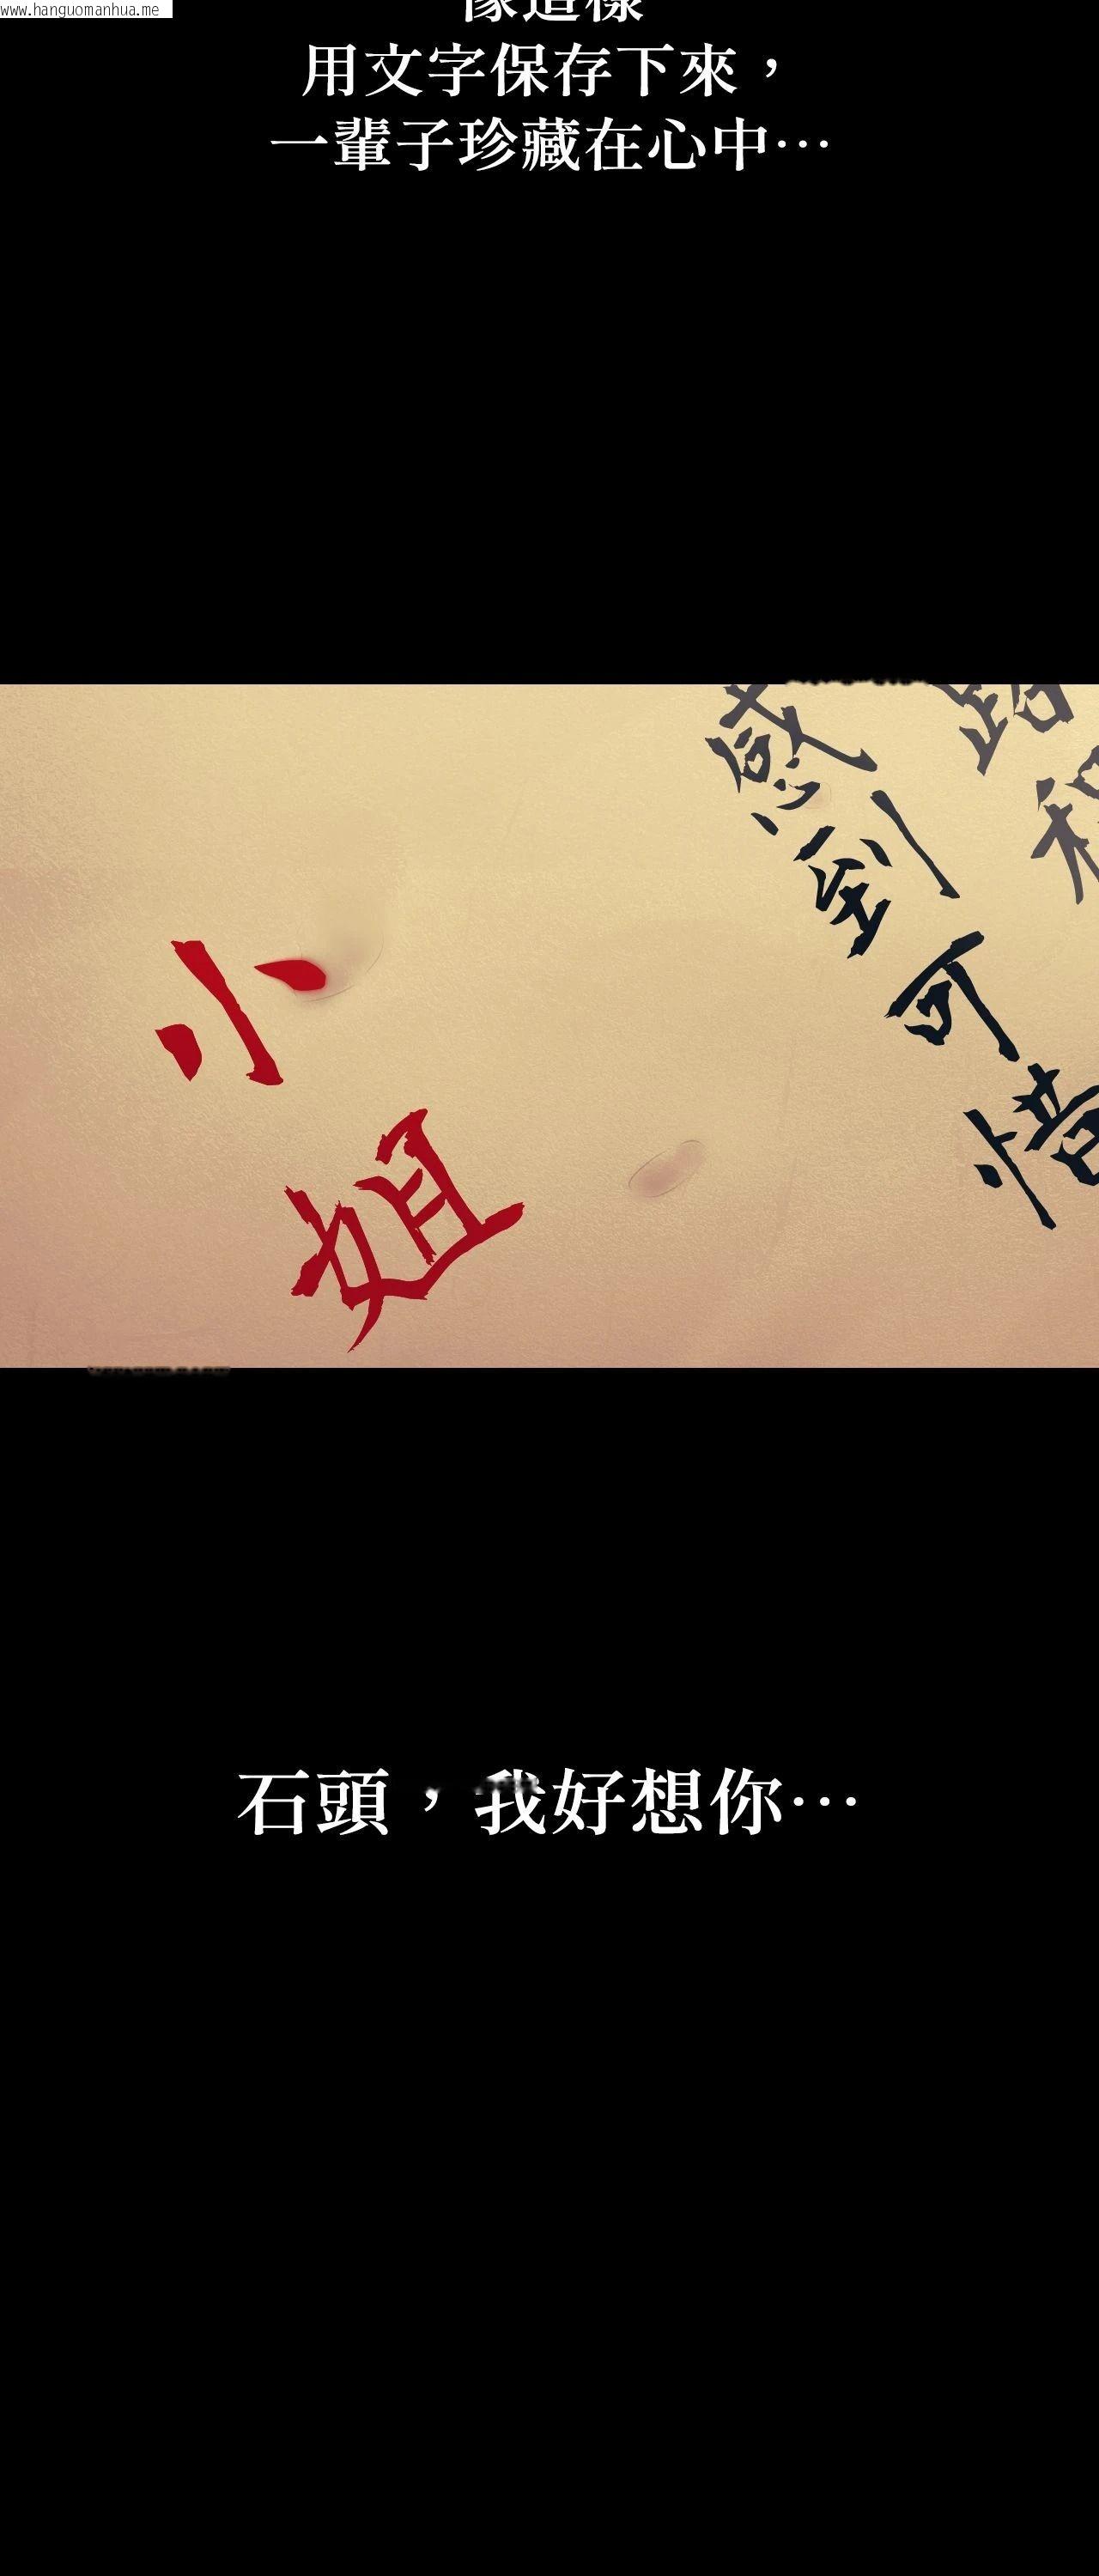 www.hanguomanhua.me
像這樣
用文字保存下來，
一輩子珍藏在心中…
感到可惜
小姐
石頭，我好想你…